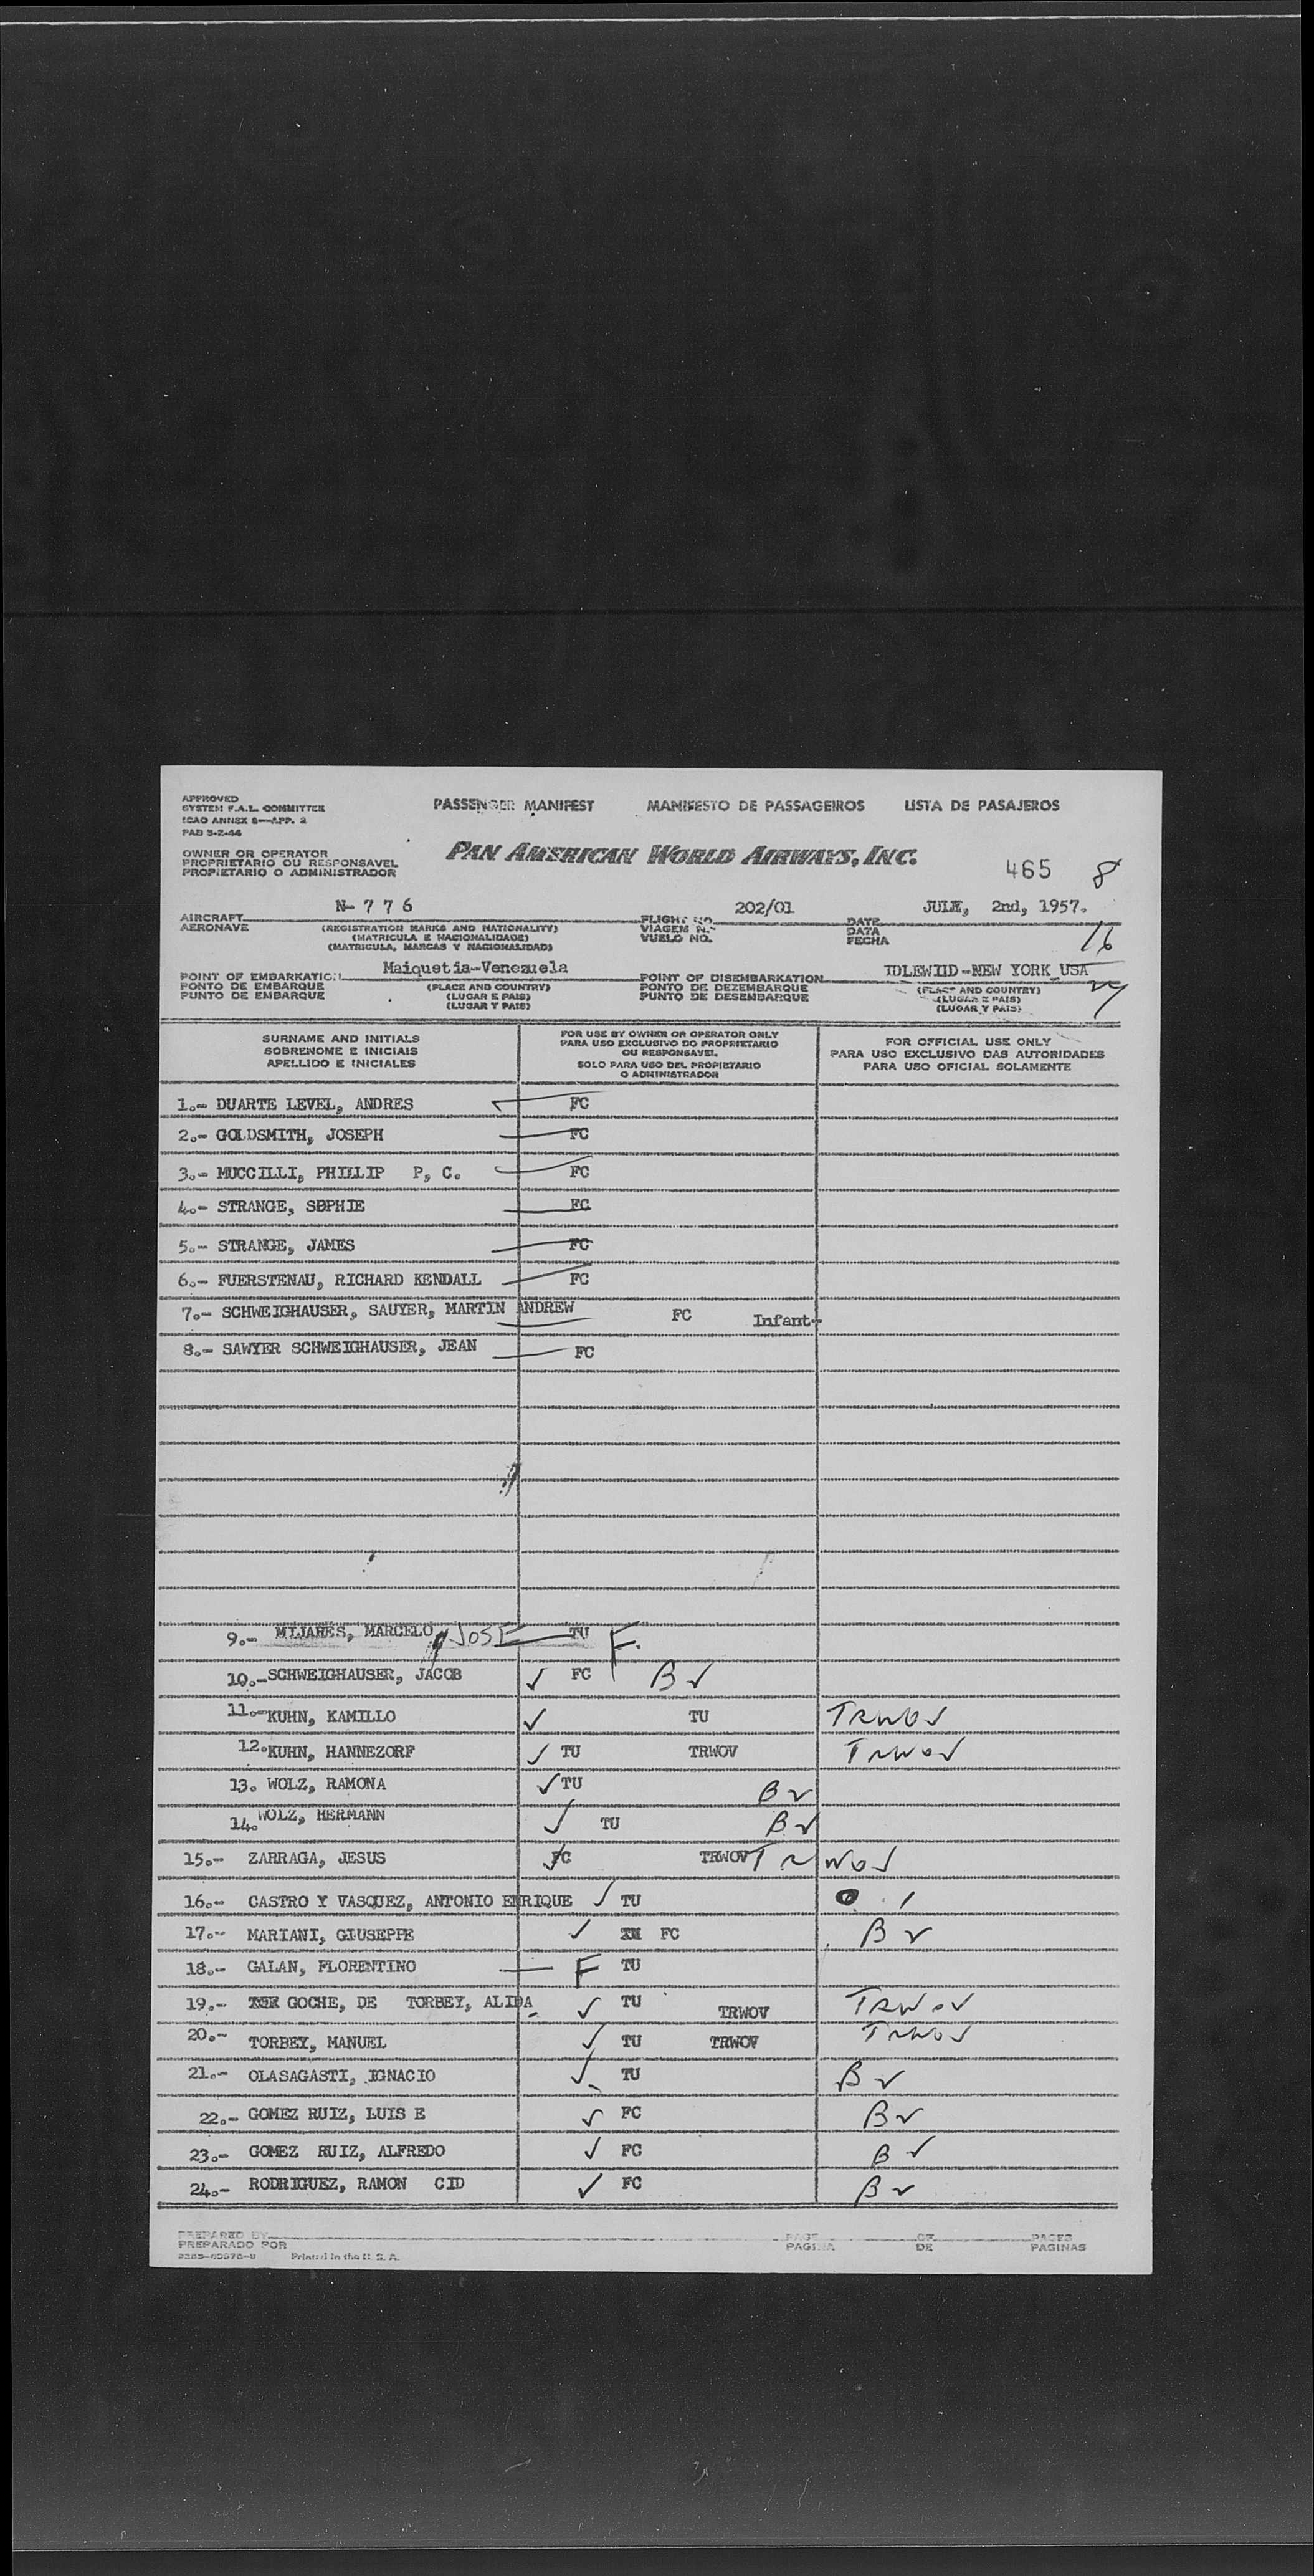 APPROVED
SYSTEM F.A.L. COMMITTEE
ICAO ANNEX 9—APP. 2
PAD 3-2-44
PASSENGER MANIFEST MANIFESTO DE PASSAGEIROS LISTA DE PASAJEROS
OWNER OR OPERATOR
PROPRIETARIO OU RESPONSAVEL
PROPIETARIO O ADMINISTRADOR
PAN AMERICAN WORLD AIRWAYS, INC.
465 8
AIRCRAFT N-776 FLIGHT NO. 202/01 DATE JULY, 2nd, 1957.
AERONAVE (REGISTRATION MARKS AND NATIONALITY) VIAGEM N.º DATA
(MATRICULA E NACIONALIDADE) VUELO NO. FECHA
(MATRICULA, MARCAS Y NACIONALIDAD)
16
POINT OF EMBARKATION Maiquetia-Venezuela POINT OF DISEMBARKATION IDLEWIID-NEW YORK USA
PONTO DE EMBARQUE (PLACE AND COUNTRY) PONTO DE DEZEMBARQUE (PLACE AND COUNTRY)
PUNTO DE EMBARQUE (LUGAR E PAIS) PUNTO DE DESEMBARQUE (LUGAR E PAIS)
(LUGAR Y PAIS) (LUGAR Y PAIS)
SURNAME AND INITIALS
SOBRENOME E INICIAIS
APELLIDO E INICIALES
FOR USE BY OWNER OR OPERATOR ONLY
PARA USO EXCLUSIVO DO PROPRIETARIO
OU RESPONSAVEL
SOLO PARA USO DEL PROPIETARIO
O ADMINISTRADOR
FOR OFFICIAL USE ONLY
PARA USO EXCLUSIVO DAS AUTORIDADES
PARA USO OFICIAL SOLAMENTE
1.- DUARTE LEVEL, ANDRES FC
2.- GOLDSMITH, JOSEPH FC
3.- MUCCILLI, PHILLIP P, C. FC
4.- STRANGE, SOPHIE FC
5.- STRANGE, JAMES FC
6.- FUERSTENAU, RICHARD KENDALL FC
7.- SCHWEIGHAUSER, SAUYER, MARTIN ANDREW FC Infant-
8.- SAWYER SCHWEIGHAUSER, JEAN FC
9.- MIJARES, MARCELO JOSE TU F.
10.- SCHWEIGHAUSER, JACOB ✓ FC B ✓
11.- KUHN, KAMILLO ✓ TU TRWOV
12. KUHN, HANNEZORF ✓ TU TRWOV TRWOV
13. WOLZ, RAMONA ✓ TU B ✓
14. WOLZ, HERMANN ✓ TU B ✓
15.- ZARRAGA, JESUS ✓ FC TRWOV TRWOV
16.- CASTRO Y VASQUEZ, ANTONIO ENRIQUE ✓ TU
17.- MARIANI, GIUSEPPE ✓ FC B ✓
18.- GALAN, FLORENTINO F TU
19.- GOCHE, DE TORBEY, ALIDA ✓ TU TRWOV TRWOV
20.- TORBEY, MANUEL ✓ TU TRWOV TRWOV
21.- OLASAGASTI, IGNACIO ✓ TU B ✓
22.- GOMEZ RUIZ, LUIS E ✓ FC B ✓
23.- GOMEZ RUIZ, ALFREDO ✓ FC B ✓
24.- RODRIGUEZ, RAMON CID ✓ FC B ✓
PREPARED BY PAGE OF PAGES
PREPARADO POR PAGINA DE PAGINAS
Printed in the U. S. A.